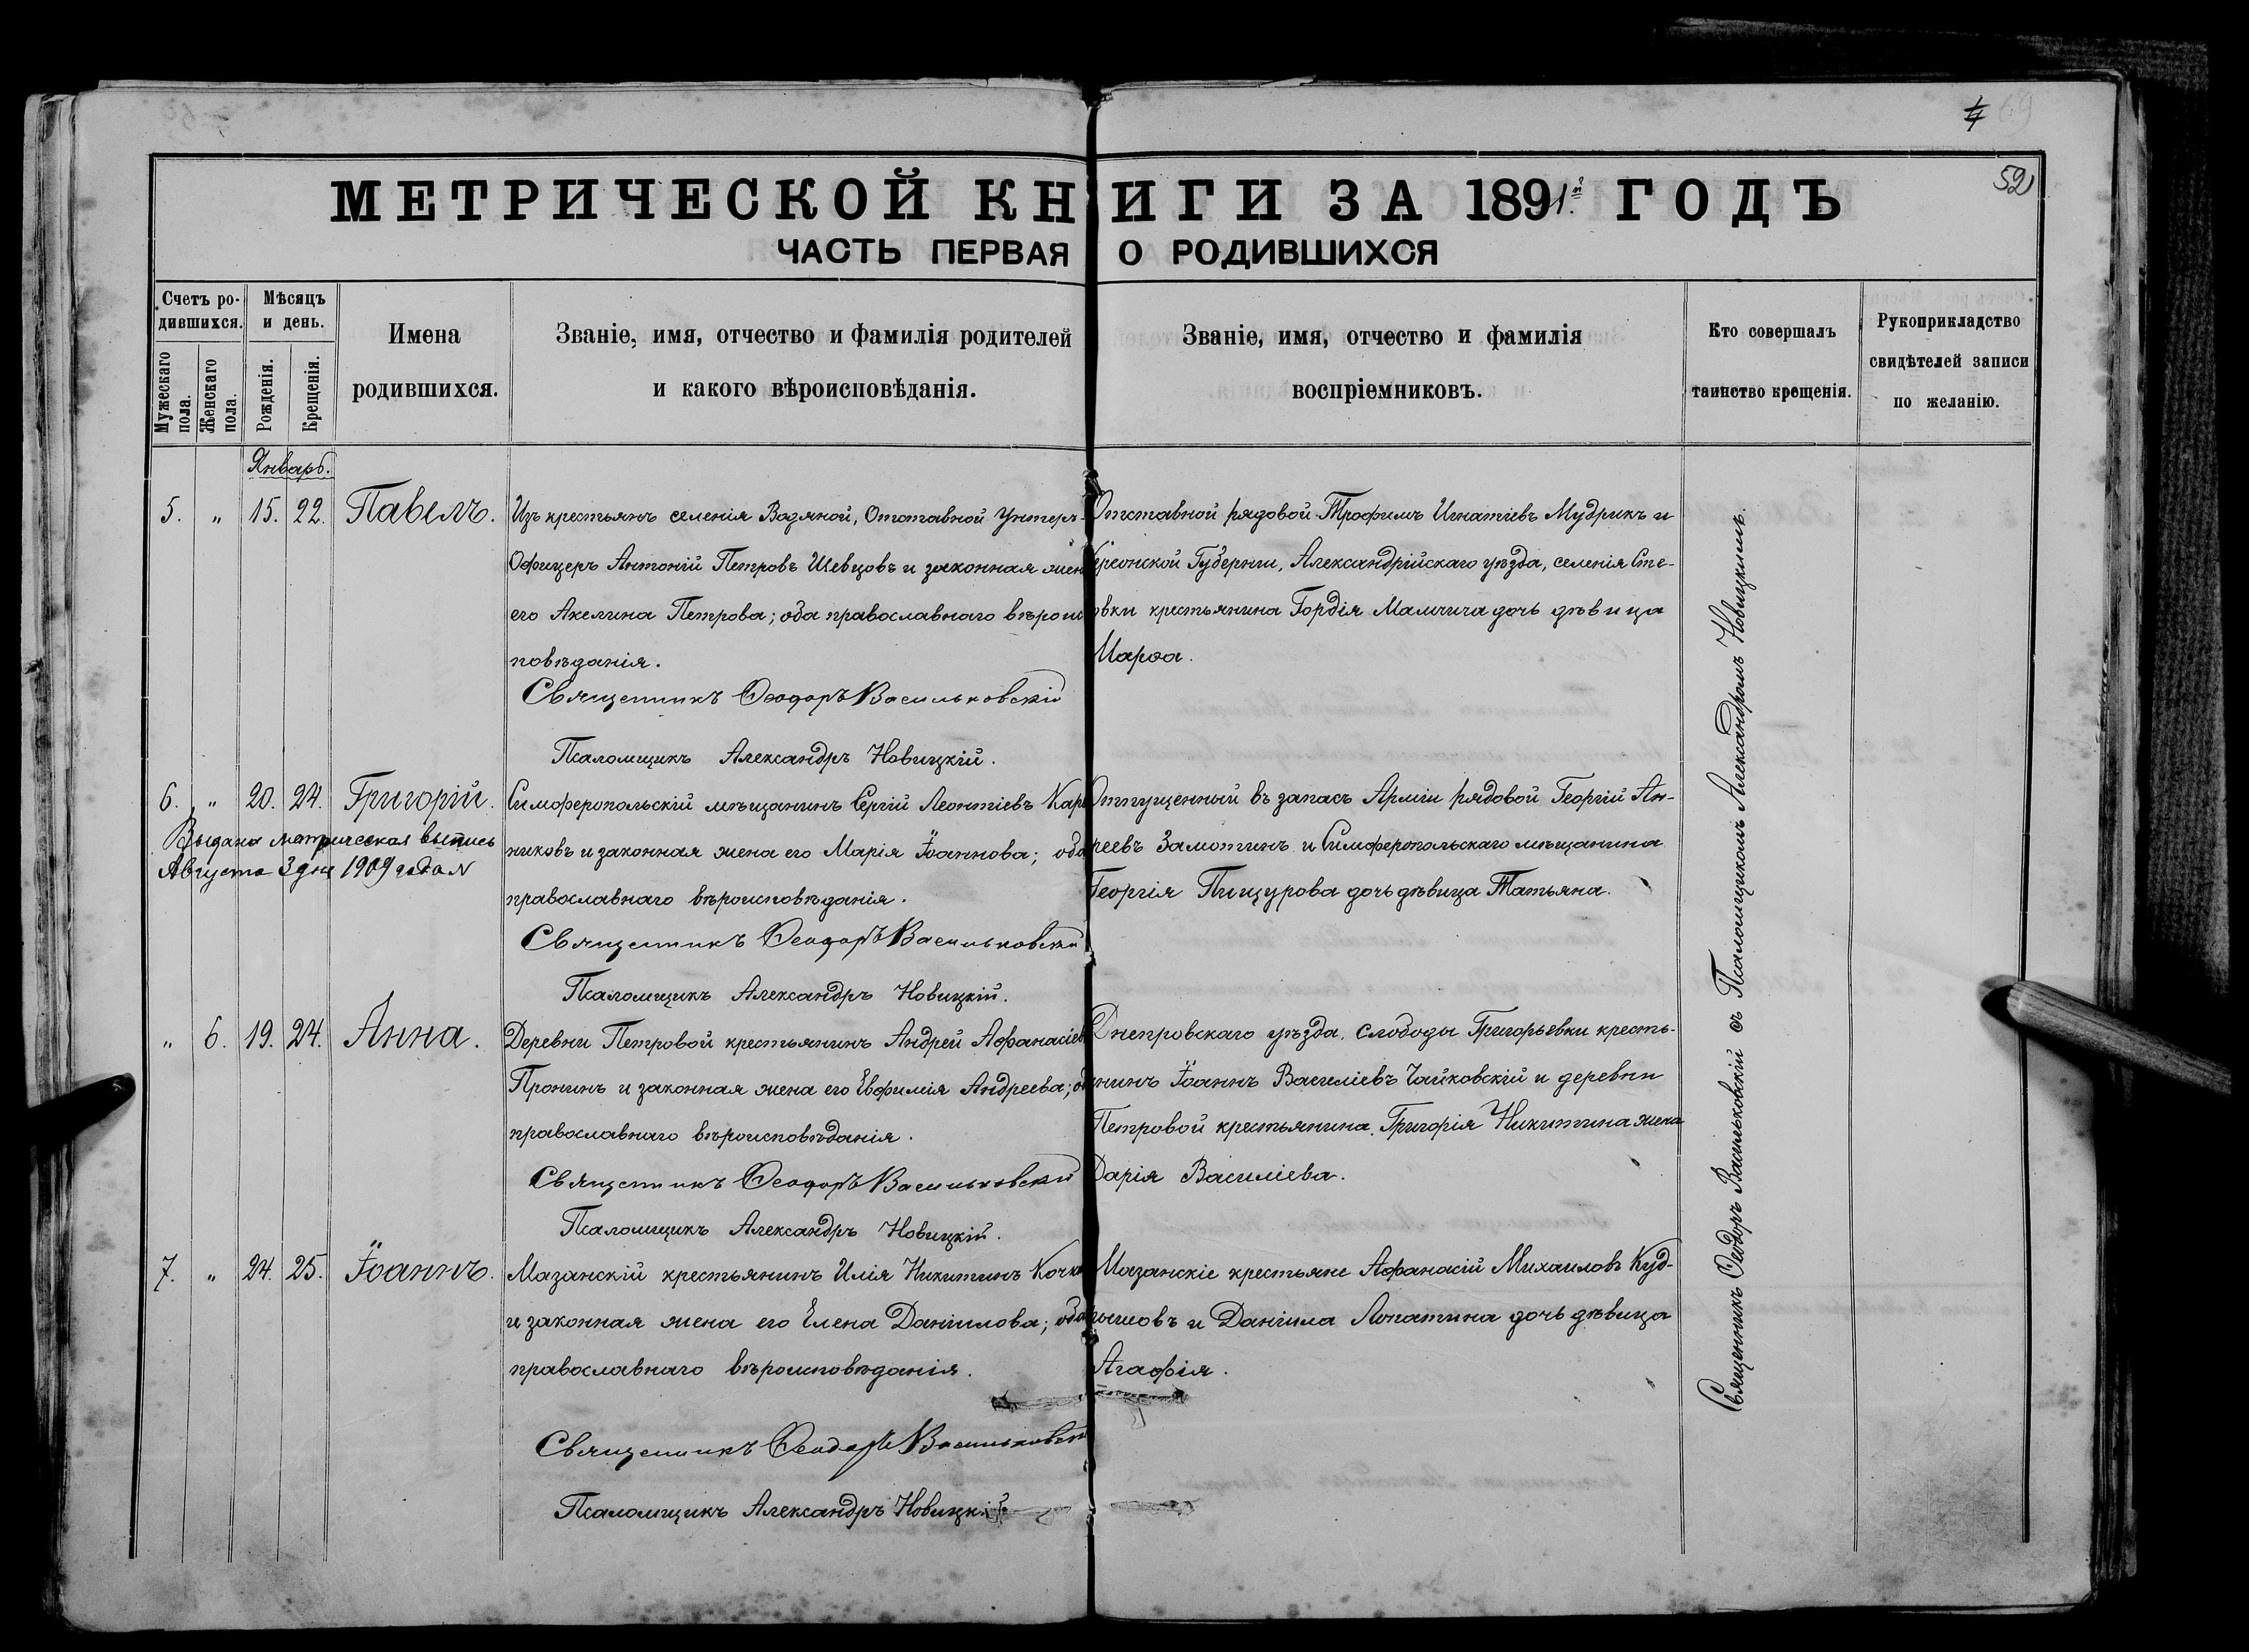 52
МЕТРИЧЕСКОЙ КНИГИ ЗА 1891й ГОДЪ
ЧАСТЬ ПЕРВАЯ О РОДИВШИХСЯ
Счетъ ро-
дившихся.
Мужескаго пола.
Женскаго пола.
Мѣсяцъ
и день.
Рожденія.
Крещенія.
Имена
родившихся.
Званіе, имя, отчество и фамилія родителей
и какого вѣроисповѣданія.
Званіе, имя, отчество и фамилія
воспріемниковъ.
Кто совершалъ
таинство крещенія.
Рукоприкладство
свидѣтелей записи
по желанію.
Январь.
5. " 15. 22. Павелъ.
Изъ крестьянъ селенія Водяной, Отставной Унтеръ-
Офицеръ Антоній Петровъ Шевцовъ и законная жен
его Акелина Петрова; оба православнаго вѣроис
повѣданія.
Священникъ Ѳеодоръ Васильковскій
Псаломщикъ Александръ Новицкій.
Отставной рядовой Трофимъ Игнатіевъ Мудрикъ и
Херсонской Губерніи, Александрійскаго уѣзда, селенія Сте-
овки крестьянина Гордія Мамчича дочь дѣвица
Марѳа.
6. " 20. 24. Григорій.
Выдана метрическая выпись
Августа 3 дня 1909 года N
Симферопольскій мѣщанинъ Сергій Леонтіевъ Кар
никовъ и законная жена его Марія Іоаннова; оба
православнаго вѣроисповѣданія.
Священникъ Ѳеодоръ Васильковскій
Псаломщикъ Александръ Новицкій.
Отпущенный въ запасъ Арміи рядовой Георгій Ан-
реевъ Замотинъ и Симферопольскаго мѣщанина
Георгія Пищурова дочь дѣвица Татьяна.
" 6. 19. 24. Анна.
Деревни Петровой крестьянинъ Андрей Афанасіев
Пронинъ и законная жена его Евфимія Андреева; об
православнаго вѣроисповѣданія.
Священникъ Ѳеодоръ Васильковскій
Псаломщикъ Александръ Новицкій.
Днепровскаго уѣзда, слободы Григорьевки кресть-
нинъ Іоаннъ Василіевъ Чайковскій и деревни
Петровой крестьянина Григорія Никитина жена
Дарія Василіева.
7. " 24. 25. Іоаннъ.
Мазанскій крестьянинъ Илія Никитинъ Кочк
и законная жена его Елена Даніилова; оба
православнаго вѣроисповѣданія.
Священникъ Ѳеодоръ Васильковскій
Псаломщикъ Александръ Новицкій.
Мазанскіе крестьяне Афанасій Михаиловъ Куд-
Даніила Лопатина дочь дѣвица
Агафія.
Священникъ Ѳеодоръ Васильковскій съ Псаломщикомъ Александромъ Новицкимъ.